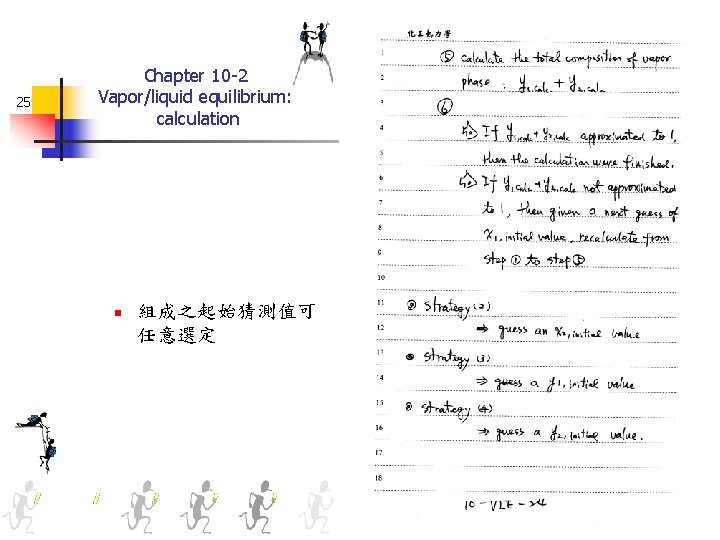 25
Chapter 10-2
Vapor/liquid equilibrium:
calculation
組成之起始猜測值可
任意選定
化工熱力學
1 ⑤ calculate the total composition of vapor
2 phase : y1,calc + y2,calc
3 ⑥
4 If y1,calc + y2,calc approximated to 1,
5 then the calculation were finished.
6 If y1,calc + y2,calc not approximated
7 to 1, then given a next guess of
8 x1, initial value, recalculate from
9 step ① to step
10
11 strategy (2)
12 ⇒ guess an x2, initial value
13 strategy (3)
14 ⇒ guess a y1, initial value
15 strategy (4)
16 ⇒ guess a y2, initial value.
17
18
10-VLE-24